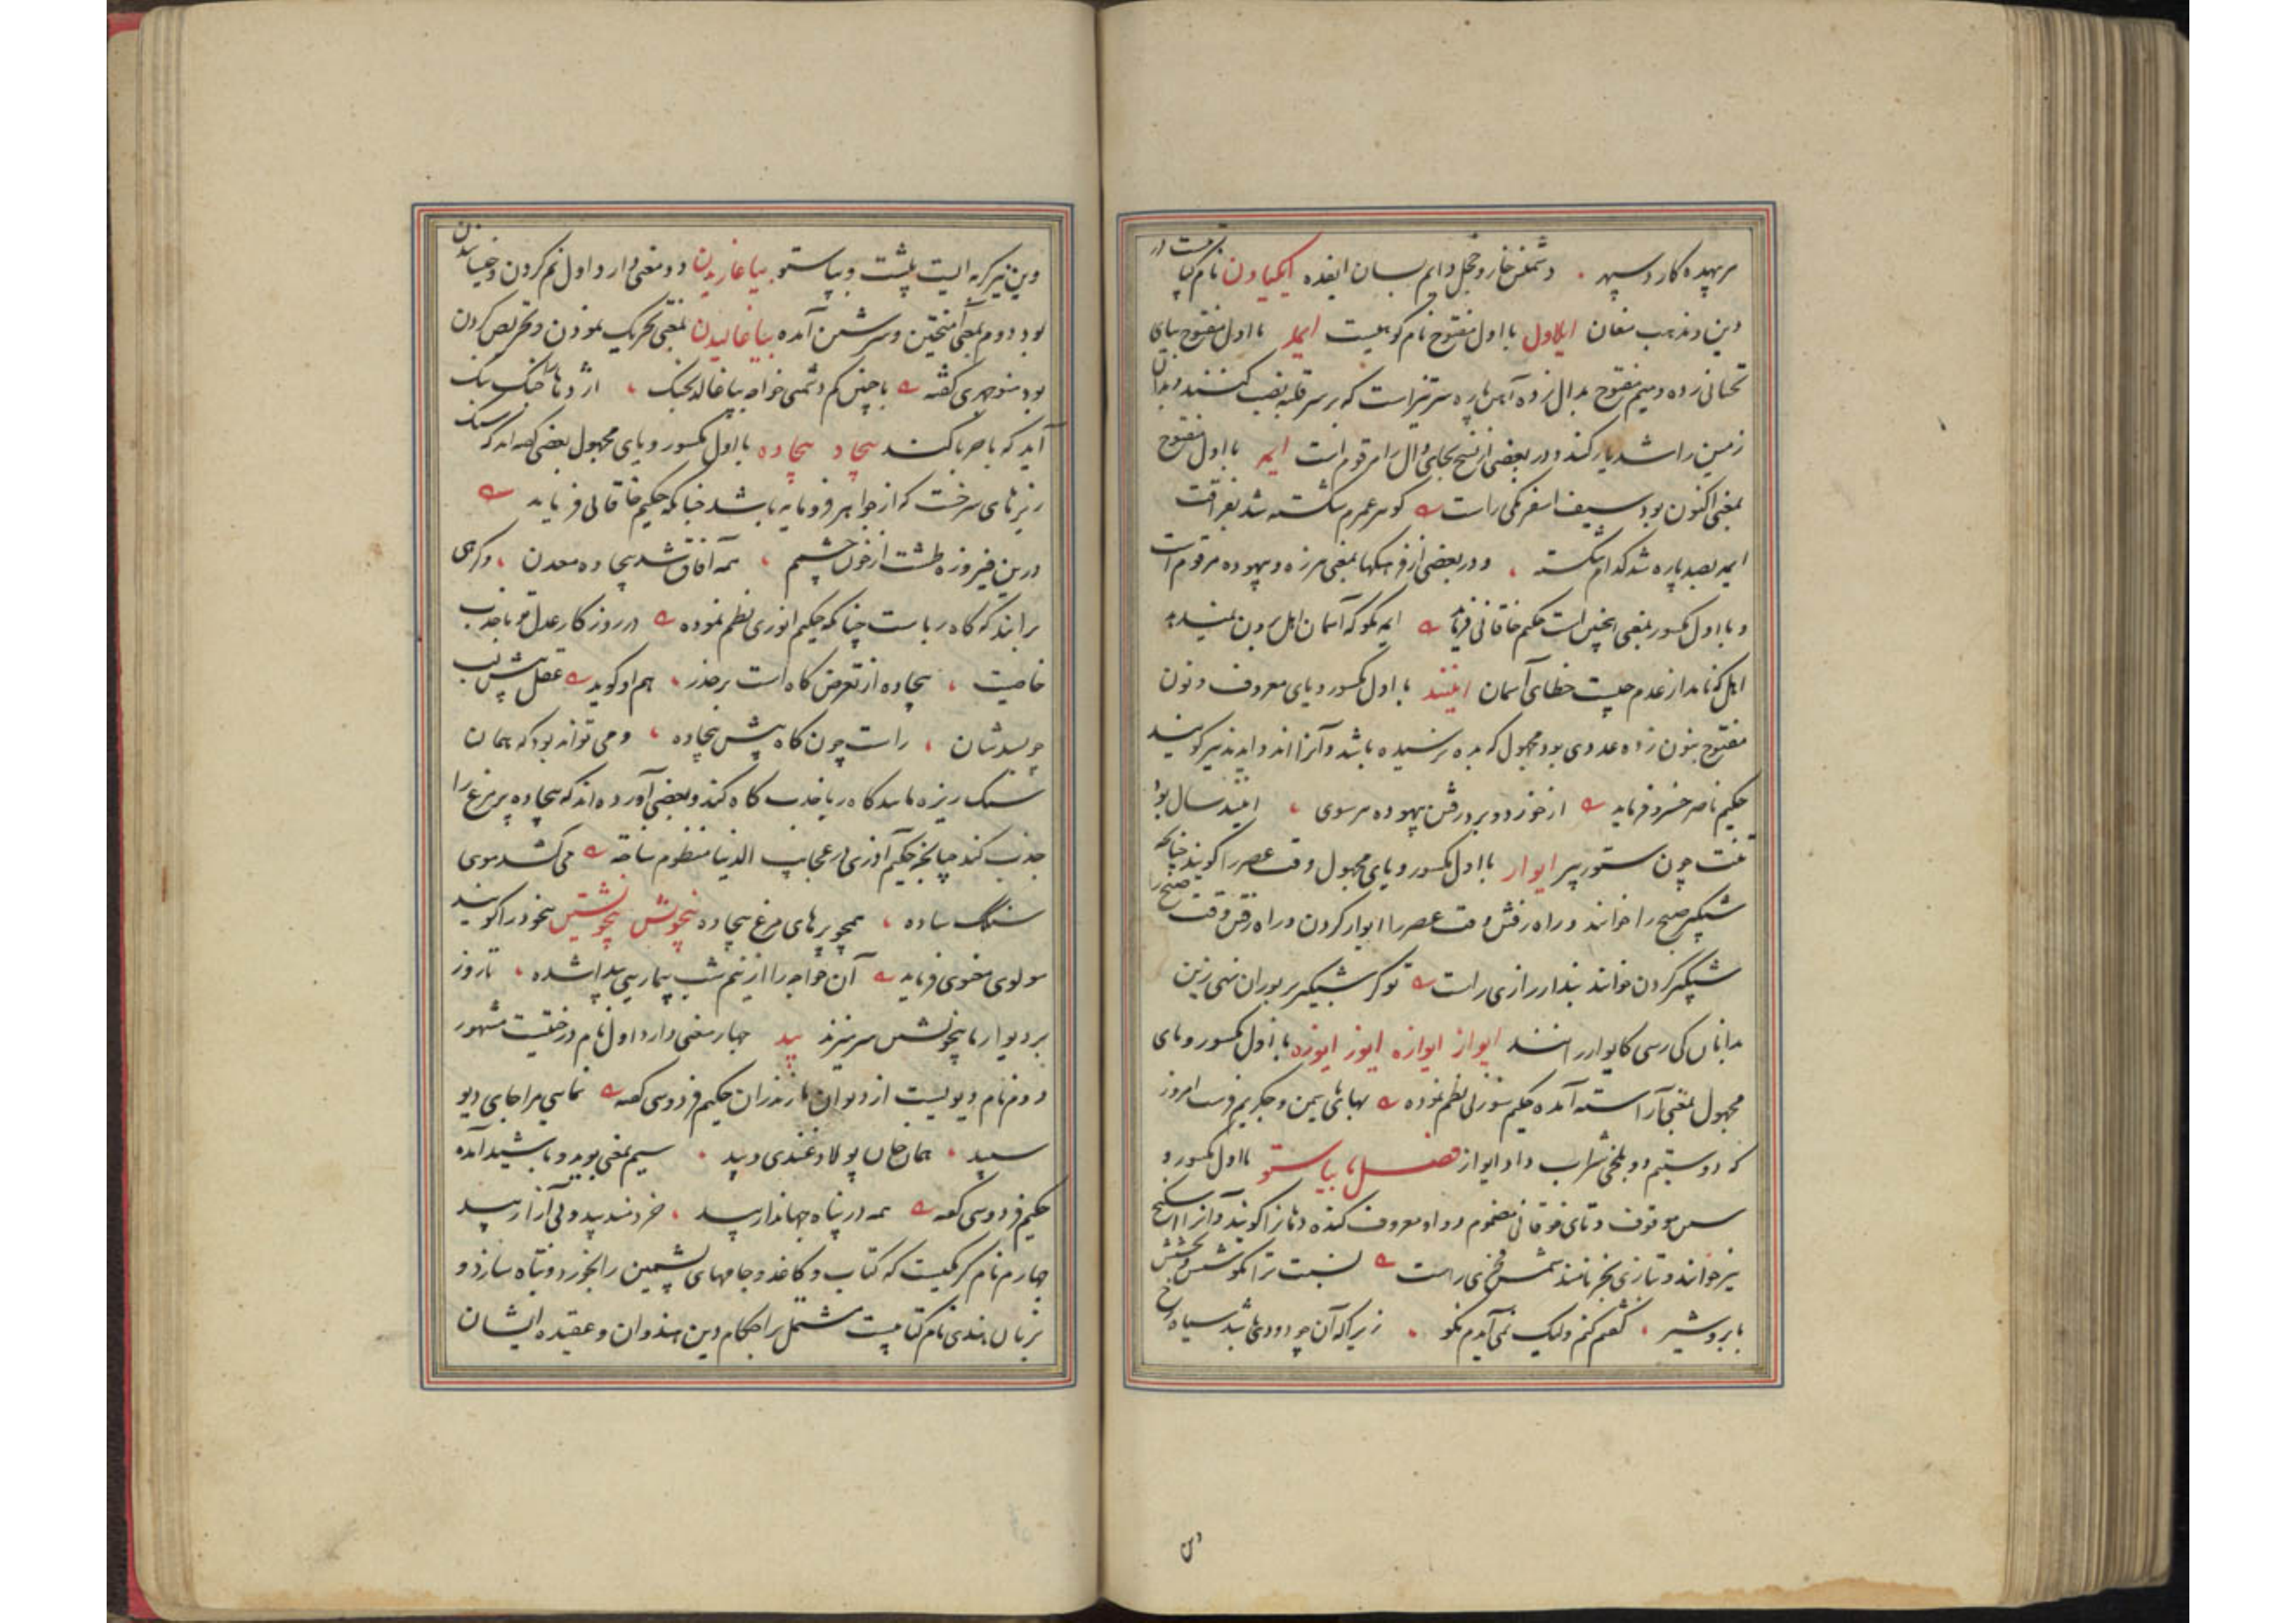 مر بیهده کار و سپهر ۰ دشمنش خار و خجل دایم بسان ایفده ایکیاون نام کتابیست در
دین و مذهب مغان ایلاول با اول مفتوح نام کوهیست ایمد با اول مفتوح بیای
تحتانی زده و میم مفتوح بدال زده آهن پاره سرتیز است که بر سر قلبه نصب کنند و بدان
زمین را شدیار کنند و در بعضی از نسخ بجای دال را مرقوم است ایمه با اول مفتوح
بمعنی اکنون بود سیف اسفرنکی راست کوهر عمرم شکسته شد بفراقت
ایمه بصد پاره شد کدام شکسته ، و در بعضی از فرهنگها بمعنی هرزه و بیهوده مرقوم است
و با اول مکسور بمعنی اینچنین است حکیم خاقانی فرماید ایمه مگو که آسمان اهل برون نمیدهد
اهل که نامد از عدم چیست خطای آسمان ایند با اول مکسور و یای معروف و نون
مفتوح بنون زده عددی بود مجهول که بده نرسیده باشد و آنرا اند و ایدند نیز گویند
حکیم ناصر خسرو فرماید از خور و دویدن و رفتن بیهوده هر سوی ، ایند سال بود
تنت چون ستور پیر ایوار با اول مکسور و یای مجهول وقت عصر را گویند چنانکه
شبگیر صبح را خوانند و راه رفتن وقت عصر را ایوار کردن و راه رفتن وقت صبح را
شبگیر کردن خوانند بندار رازی راست تو کر شبگیر بر بوران نهی زین
بدانان کی رسی کایوار رانند ایواز ایوازه ایوز ایوزه با اول مکسور و یای
مجهول بمعنی آراسته آمده حکیم سوزنی نظم نموده
که دوستیم دو بلخی شراب داد ایواز فصل با بیاستو با اول مکسور و
سین موقوف و تای فوقانی مضموم و واو معروف کنده دهان را گویند و آنرا
نیز خوانند و بتازی بخر نامند شمس فخری راست نسبت ترا بکوشش و بخشش
بابر و شیر ، گفتم کنم ولیک نمی آیدم نکو ۰ زیرا که آن چو دودی باشد سیاه رخ
وین نیز گربه ایست پلشت و بیاستو بیاغاریدن دو معنی دارد اول نم کردن و خیسانیدن
بود دوم بمعنی آمیختن و سرشتن آمده بیاغالیدن بمعنی تحریک نمودن و تحریص کردن
بود منوچهری گفته با چنین کم دشمنی خواجه نیاغالد بجنگ ، اژدها را جنگ ننگ
آید که با حربا کند بیجاد بیجاده با اول مکسور و یای مجهول بعضی گفته اند که سنگ
ریزهای سرخست که از جواهر فرومایه باشد چنانکه حکیم خاقانی فرماید
درین فیروزه طشت از خون چشمم ، همه آفاق شد بیجاده معدن ، و گروهی
برانند که کاه رباست چنانکه حکیم انوری نظم نموده در روزگار عدل تو با جذب
خاصیت ، بیجاده از تعرض کاه است بر حذر ، هم او گوید عقل پیش لب
چو بسدشان ، راست چون کاه پیش بیجاده ، و می تواند بود که همان
سنگ ریزه مانند کاه ربا جذب کاه کند و بعضی آورده اند که بیجاده پر مرغ را
جذب کند چنانچه حکیم آذری در عجایب الدنیا منظوم ساخته می کشد سوی
سنگ ساده ، همچو پرهای مرغ بیجاده بیخوش بیخوشتن بیخود را گویند
مولوی معنوی فرماید آن خواجه را از نیم شب بیماریی پیدا شده ، تا روز
بر دیوار ما بیخویشتن سر میزند بید چهار معنی دارد اول نام درختیست مشهور
دوم نام دیویست از دیوان مازندران حکیم فردوسی گفته نمایی مرا جای دیو
سپید ، همان جای پولاد غندی و بید ۰ سیم بمعنی بوید و باشید آمده
حکیم فردوسی گفته همه در پناه جهاندار بید ، خردمند بید و بی آزار بید
چهارم نام کرمکیست که کتاب و کاغذ و جامهای پشمین را بخورد و تباه سازد و
بزبان هندی نام کتابیست مشتمل بر احکام دین هندوان و عقیده ایشان